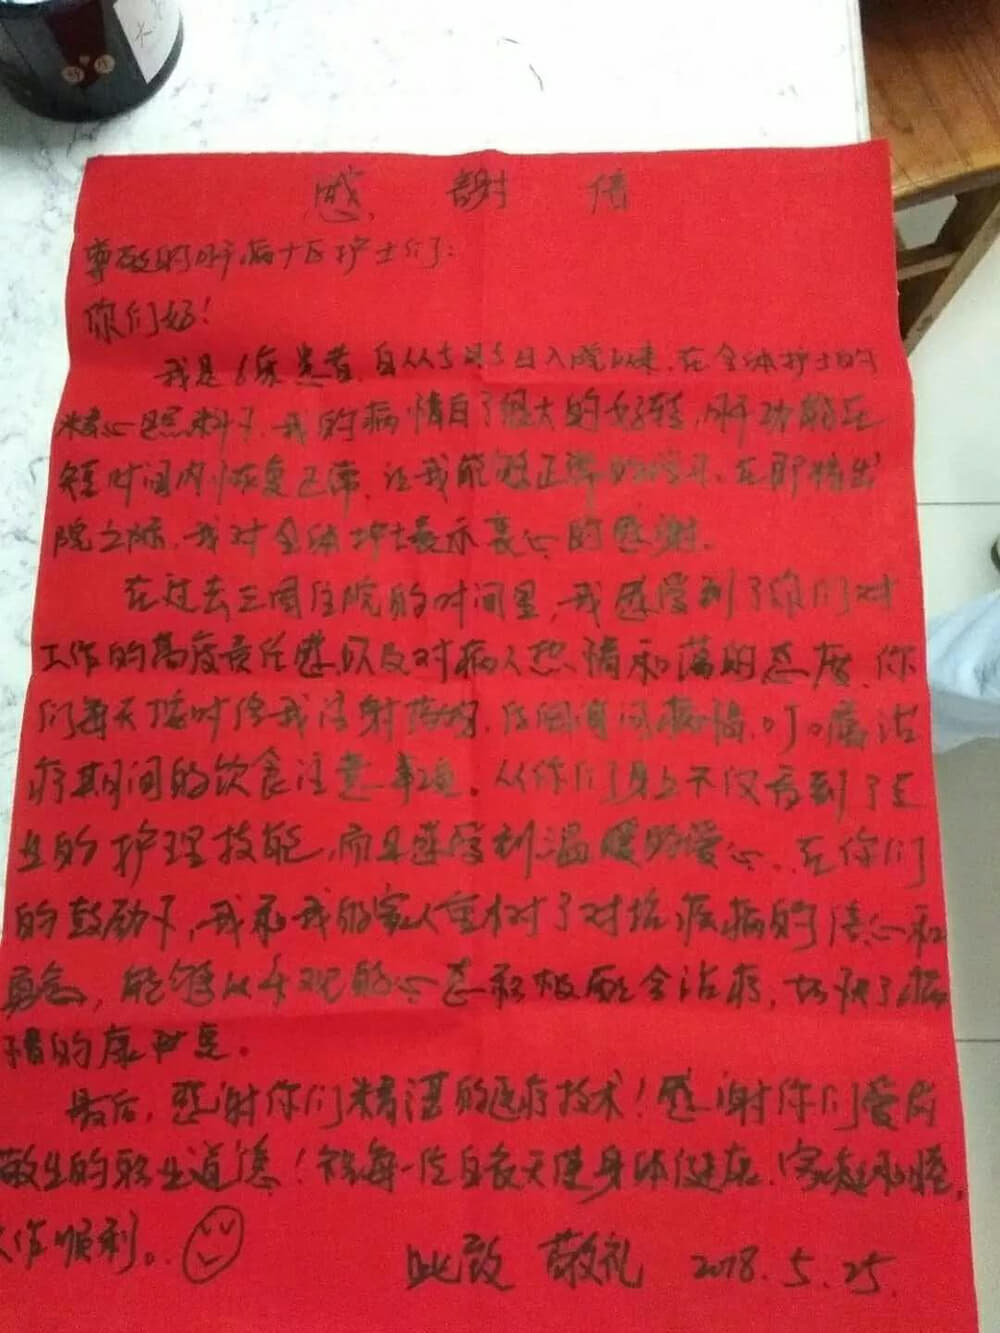 感 谢 信
尊敬的肝病十区护士们：
你们好！
我是6床患者，自从5月5日入院以来，在全体护士的
精心照料下，我的病情有了很大的好转，肝功能在
短时间内恢复正常，让我能够正常的学习。在即将出
院之际，我对全体护士表示衷心的感谢。
在过去三周住院的时间里，我感受到了你们对
工作的高度责任感以及对病人热情和蔼的态度，你
们每天按时给我注射药物，仔细询问病情，叮嘱治
疗期间的饮食注意事项。从你们身上不仅看到了专
业的护理技能，而且感受到温暖的爱心。在你们
的鼓励下，我和我的家人重树了对抗疾病的信心和
勇气，能够以乐观的心态积极配合治疗，加快了病
情的康复。
最后，感谢你们精湛的医疗技术！感谢你们爱岗
敬业的职业道德！祝每一位白衣天使身体健康，家庭和睦，
工作顺利。
此致 敬礼 2018.5.25